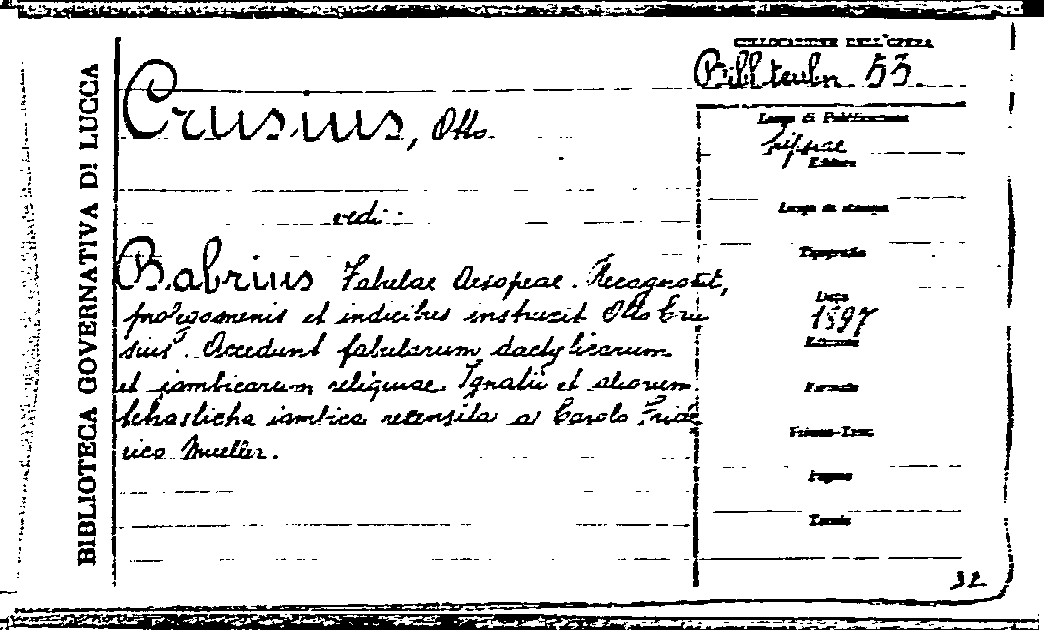 BIBLIOTECA GOVERNATIVA DI LUCCA
COLLOCAZIONE DELL'OPERA
Bibl. teubn. 53.
Crusius, Otto.
vedi:
Babrius Fabulae Aesopeae. Recognovit,
prolegomenis et indicibus instruxit Otto Cru-
sius. Accedunt fabularum dactylicarum
et iambicarum reliquiae. Ignatii et aliorum
tetrasticha iambica recensita a Carolo Fride-
rico Mueller.
Luogo di Pubblicazione
Lipsiae
Editore
Luogo di stampa
Tipografia
Data
1897
Edizione
Formato
Pagine
Tomie
32